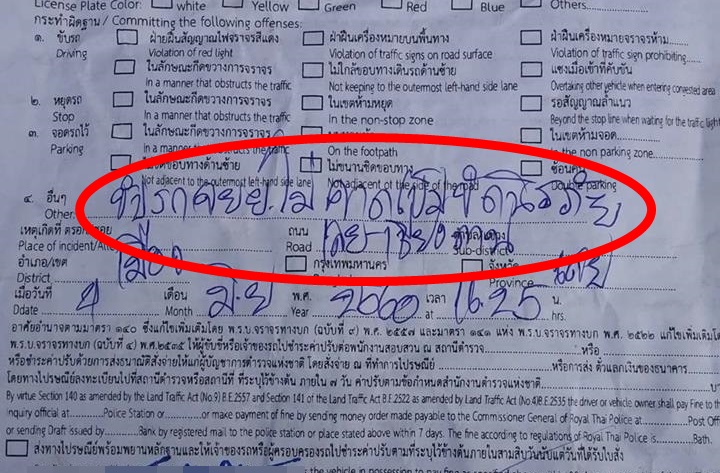 License Plate Color: white Yellow Green Red Blue Others
กระทำผิดฐาน / Committing the following offenses:
๑. ขับรถ ฝ่าฝืนสัญญาณไฟจราจรสีแดง ฝ่าฝืนเครื่องหมายบนพื้นทาง ฝ่าฝืนเครื่องหมายจราจรห้าม
Driving Violation of red light Violation of traffic signs on road surface Violation of traffic sign prohibiting
ในลักษณะกีดขวางการจราจร ไม่ใกล้ขอบทางเดินรถด้านซ้าย แซงเมื่อเข้าที่คับขัน
In a manner that obstructs the traffic Not keeping to the outermost left-hand side lane Overtaking other vehicle when entering congested area
๒. หยุดรถ ในลักษณะกีดขวางการจราจร ในเขตห้ามหยุด รอสัญญาณล้ำแนว
Stop In a manner that obstructs the traffic In the non-stop zone Beyond the stop line when waiting for the traffic light
๓. จอดรถไว้ ในลักษณะกีดขวางการจราจร ในเขตห้ามจอด
Parking In a manner that obstructs the traffic On the footpath In the non parking zone
ไม่ชิดขอบทางด้านซ้าย ไม่ขนานชิดขอบทาง ซ้อนคัน
Not adjacent to the outermost left-hand side lane Not adjacent of the side of the road Double parking
๔. อื่นๆ ขับรถ ไม่คาดเข็มขัดนิรภัย
Other
เหตุเกิดที่ ตรอก/ซอย ถนน
Place of incident/Alley Road Sub-district
อำเภอ/เขต เมือง กรุงเทพมหานคร จังหวัด
District Province
เมื่อวันที่ เดือน มิ.ย. พ.ศ. 2560 เวลา 16.25 น.
Ddate Month Year at
อาศัยอำนาจตามมาตรา ๑๔๐ ซึ่งแก้ไขเพิ่มเติมโดย พ.ร.บ.จราจรทางบก (ฉบับที่ ๙) พ.ศ. ๒๕๕๗ และมาตรา ๑๔๑ แห่ง พ.ร.บ.จราจรทางบก พ.ศ. ๒๕๒๒ แก้ไขเพิ่มเติมโดย
พ.ร.บ.จราจรทางบก (ฉบับที่ ๔) พ.ศ. ๒๕๓๕ ให้ผู้ขับขี่หรือเจ้าของรถไปชำระค่าปรับต่อพนักงานสอบสวน ณ สถานีตำรวจ หรือ
หรือชำระค่าปรับด้วยการส่งธนาณัติสั่งจ่ายให้แก่ผู้บัญชาการตำรวจแห่งชาติ โดยสั่งจ่าย ณ ที่ทำการไปรษณีย์ หรือการส่ง ตั๋วแลกเงินของธนาคาร
โดยทางไปรษณีย์ลงทะเบียนไปที่สถานีตำรวจหรือสถานที่ ที่ระบุไว้ข้างต้น ภายใน ๗ วัน ค่าปรับตามข้อกำหนดสำนักงานตำรวจแห่งชาติ
By virtue Section 140 as amended by the Land Traffic Act (No.9) B.E.2557 and Section 141 of the Land Traffic Act B.E.2522 as amended by Land Traffic Act (No.4)B.E.2535 the driver or vehicle owner shall pay Fine to the
Inquiry official at Police Station or or make payment of fine by sending money order made payable to the Commissioner General of Royal Thai Police at Post Office
or sending Draft issued by Bank by registered mail to the police station or place stated above within 7 days. The fine according to regulations of Royal Thai Police is Bath.
ส่งทางไปรษณีย์พร้อมพยานหลักฐานและให้เจ้าของรถหรือผู้ครอบครองรถไปชำระค่าปรับตามที่ระบุไว้ข้างต้นภายในสามสิบวันนับแต่วันที่ได้รับใบสั่ง
the vehicle in possession to pay